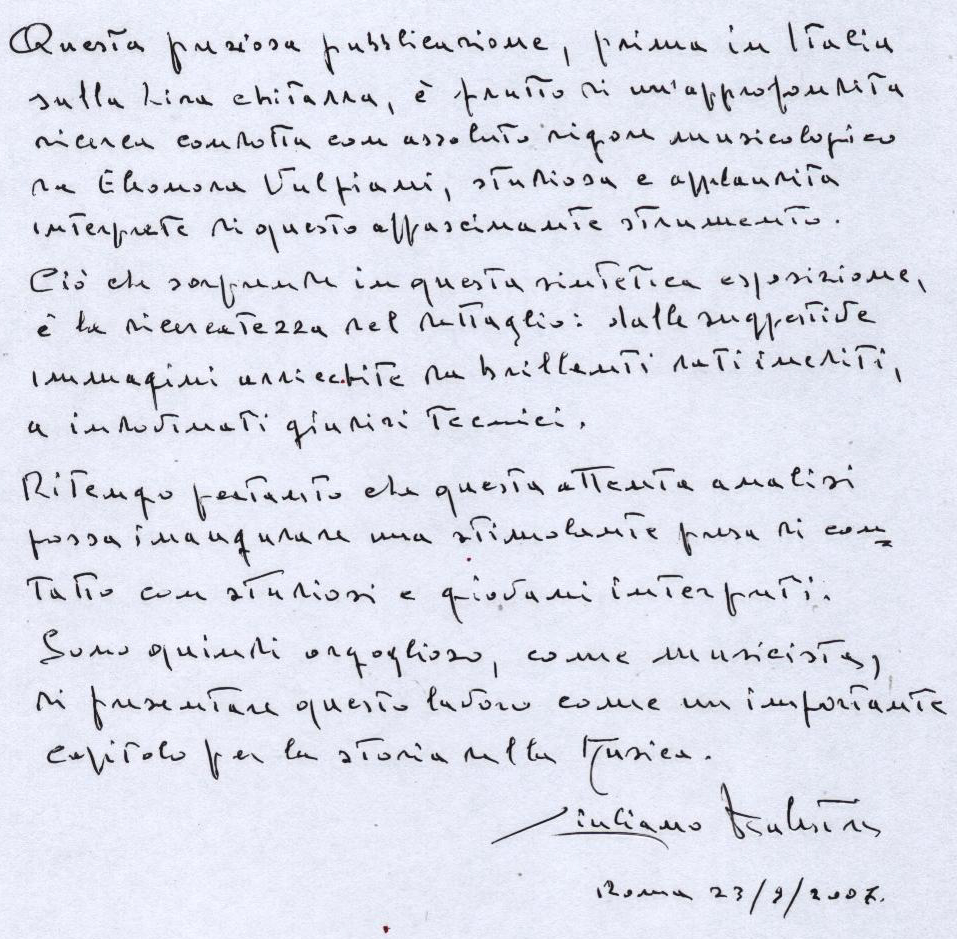 Questa preziosa pubblicazione, prima in Italia
sulla Lira chitarra, è frutto di un'approfondita
ricerca condotta con assoluto rigore musicologico
da Eleonora Vulpiani, studiosa e applaudita
interprete di questo affascinante strumento.
Ciò che sorprende in questa sintetica esposizione,
è la ricercatezza del dettaglio: dalle suggestive
immagini arricchite da brillanti dati inediti,
a indovinati giudizi tecnici.
Ritengo pertanto che questa attenta analisi
possa inaugurare una stimolante presa di con=
tatto con studiosi e giovani interpreti.
Sono quindi orgoglioso, come musicista,
di presentare questo lavoro come un importante
capitolo per la storia della Musica.
Giuliano Balestra
Roma 23/9/2007.